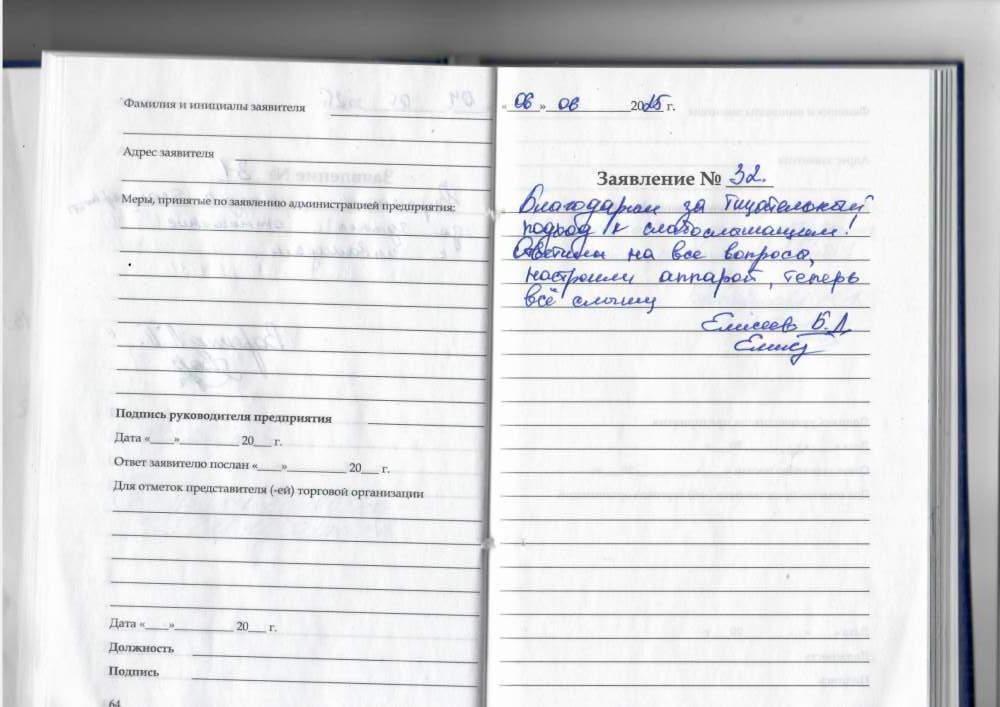 Фамилия и инициалы заявителя
Адрес заявителя
Меры, принятые по заявлению администрацией предприятия:
Подпись руководителя предприятия
Дата «___»__________ 20___ г.
Ответ заявителю послан «____»__________ 20___ г.
Для отметок представителя (-ей) торговой организации
Дата «____»__________ 20___ г.
Должность
Подпись
64
«06» 06 2025 г.
Заявление № 32.
Благодарим за тщательный
подход к слабослышащим!
Ответили на все вопросы,
настроили аппарат, теперь
всё слышу
Елисеев Б. Д.